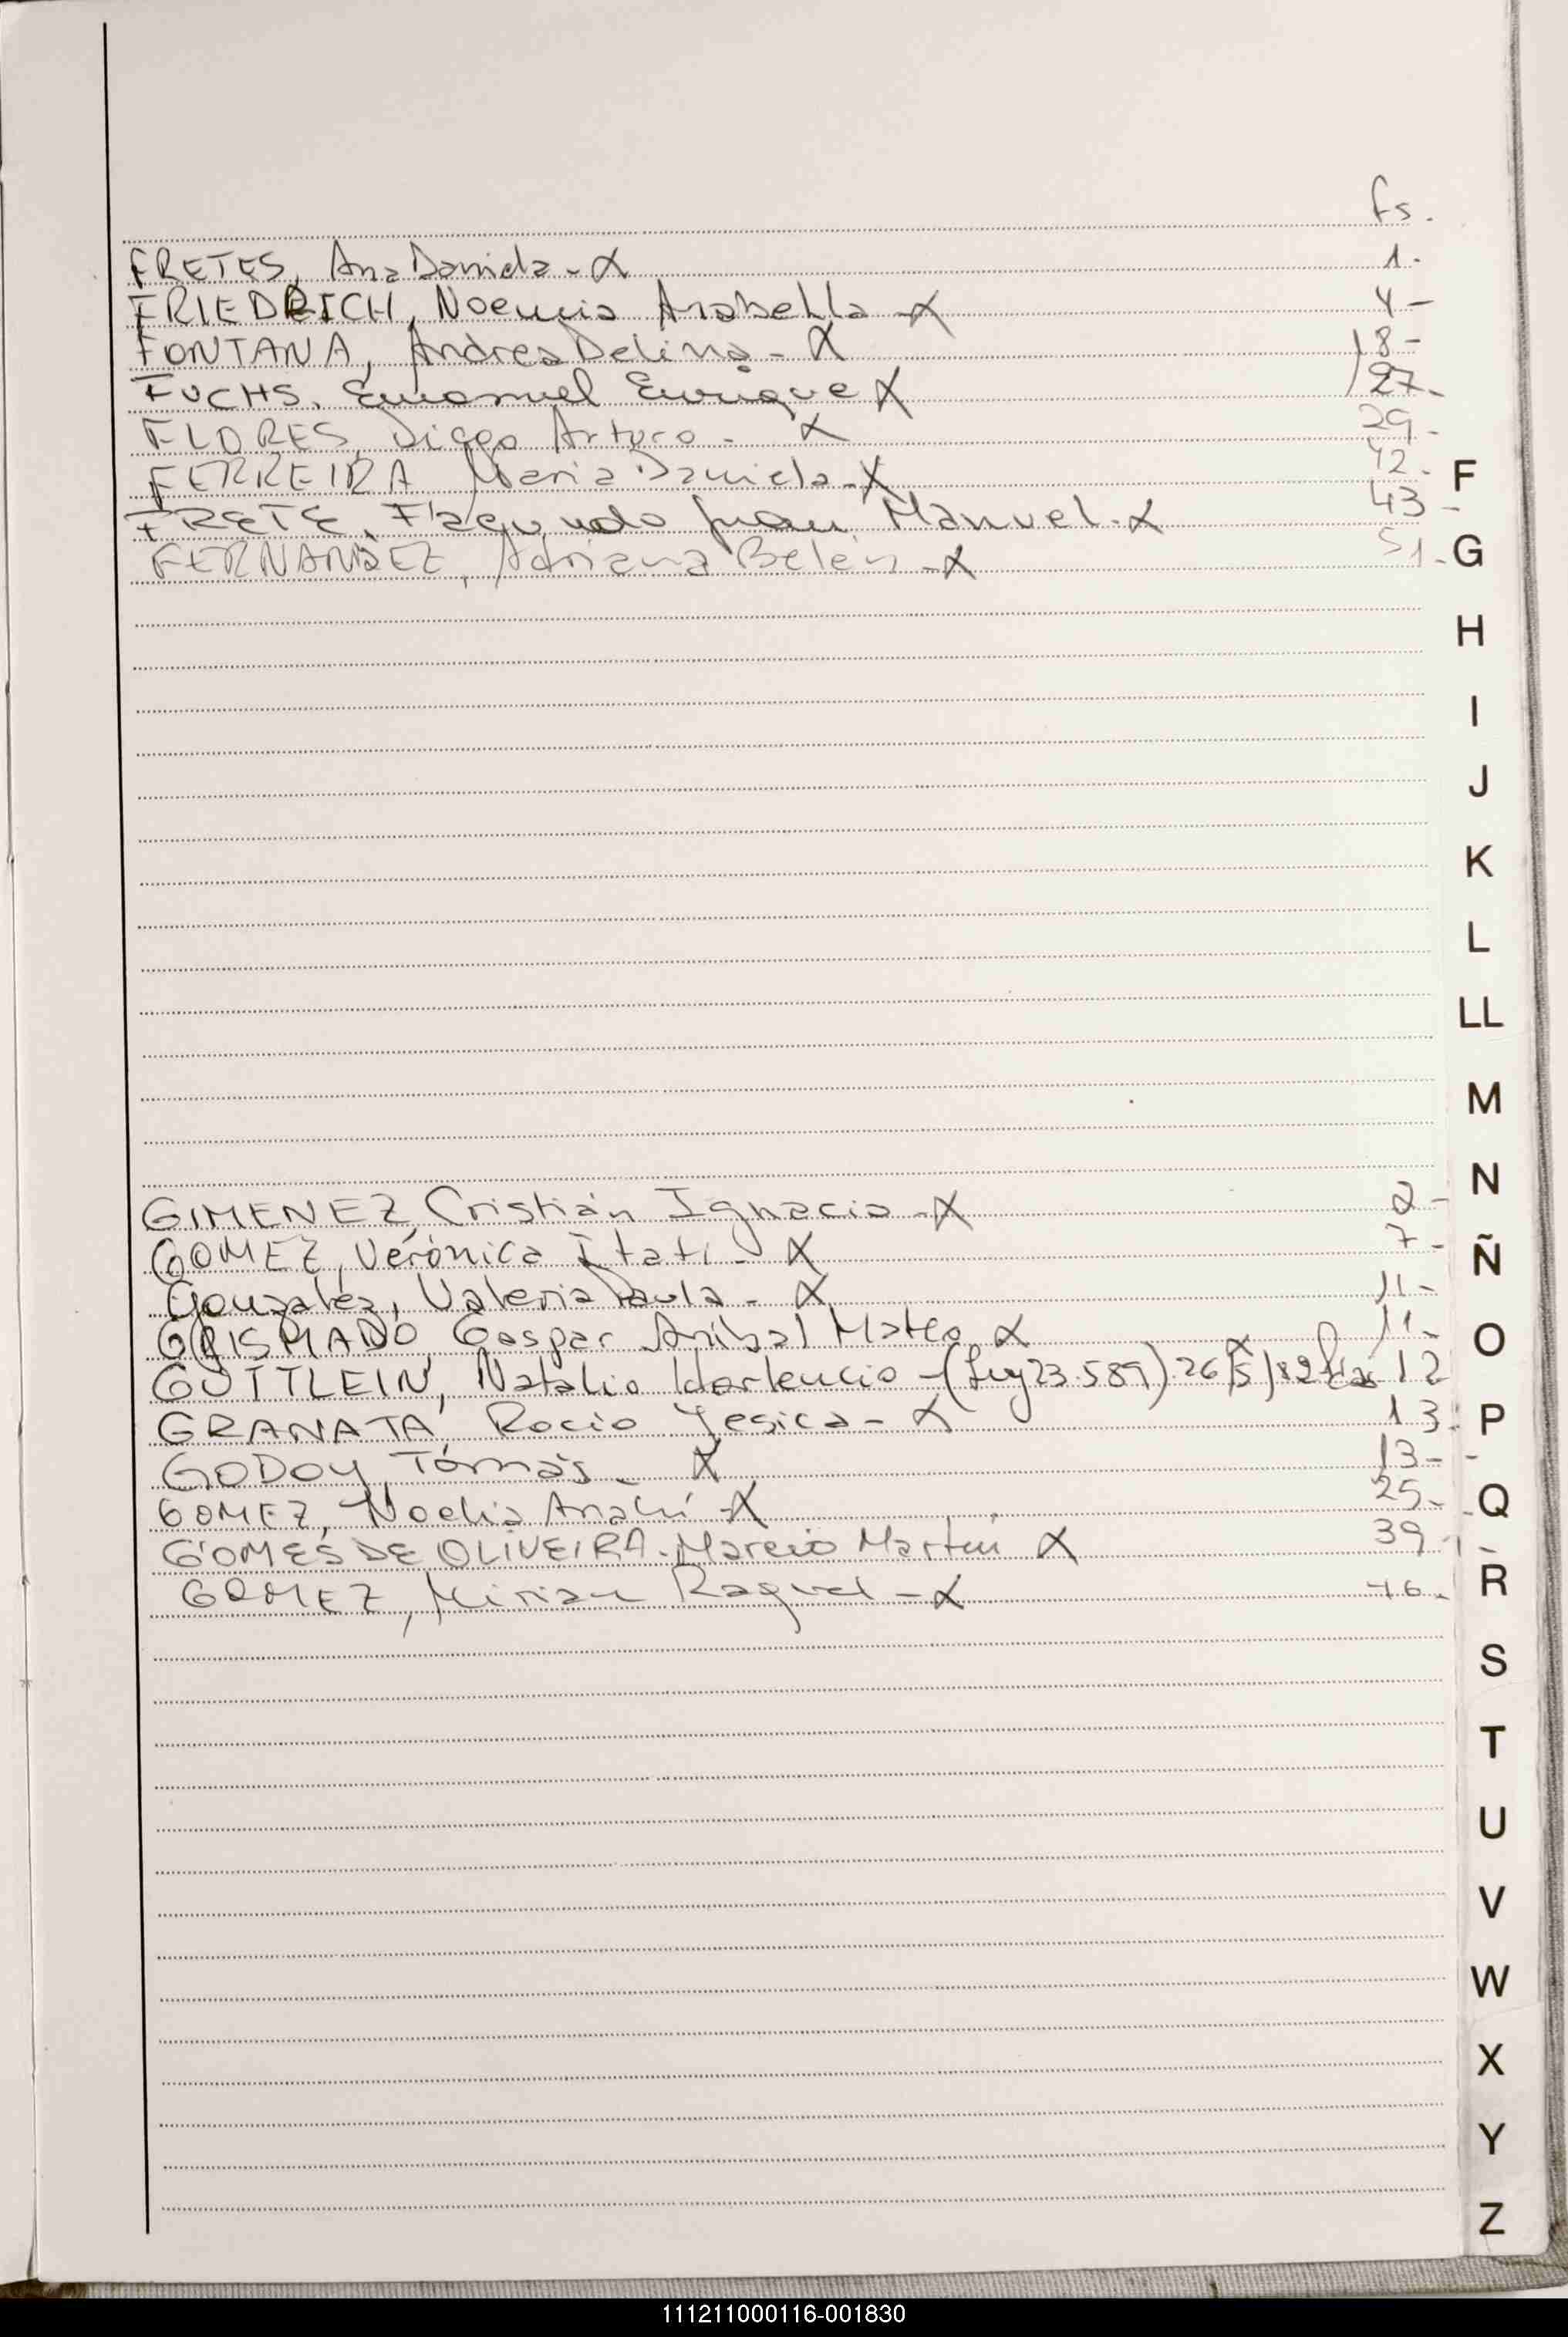 fs.
FRETES, Ana Daniela - X 1.
FRIEDRICH, Noemia Arabella - X 4 -
FONTANA, Andrea Delina - X 18 -
FUCHS, Emanuel Enrique X 27 -
FLORES, Diego Arturo - X 29 -
FERREIRA Maria Daniela - X 42 -
FRETE, Facundo Juan Manuel - X 43 -
FERNANDEZ, Adriana Belén - X 51 -
F
G
H
I
J
K
L
LL
M
N
GIMENEZ, Cristián Ignacio - X 2 -
GOMEZ, Verónica Itatí - X 7 -
Ñ
Gonzalez, Valeria Paula - X 11 -
GRISMADO, Gaspar Aníbal Mateo X 11 -
O
GUTTLEIN, Natalio Hortencio - (Ley 23.589) 26/5/82 X 12
GRANATA, Rocio Yesica - X 13 -
P
GODOY, Tomás - X 13 -
GOMEZ, Noelia Anahí - X 25 -
Q
GOMES DE OLIVEIRA - Marcio Martin X 39 -
GOMEZ, Mirian Raquel - X 46 -
R
S
T
U
V
W
X
Y
Z
111211000116-001830